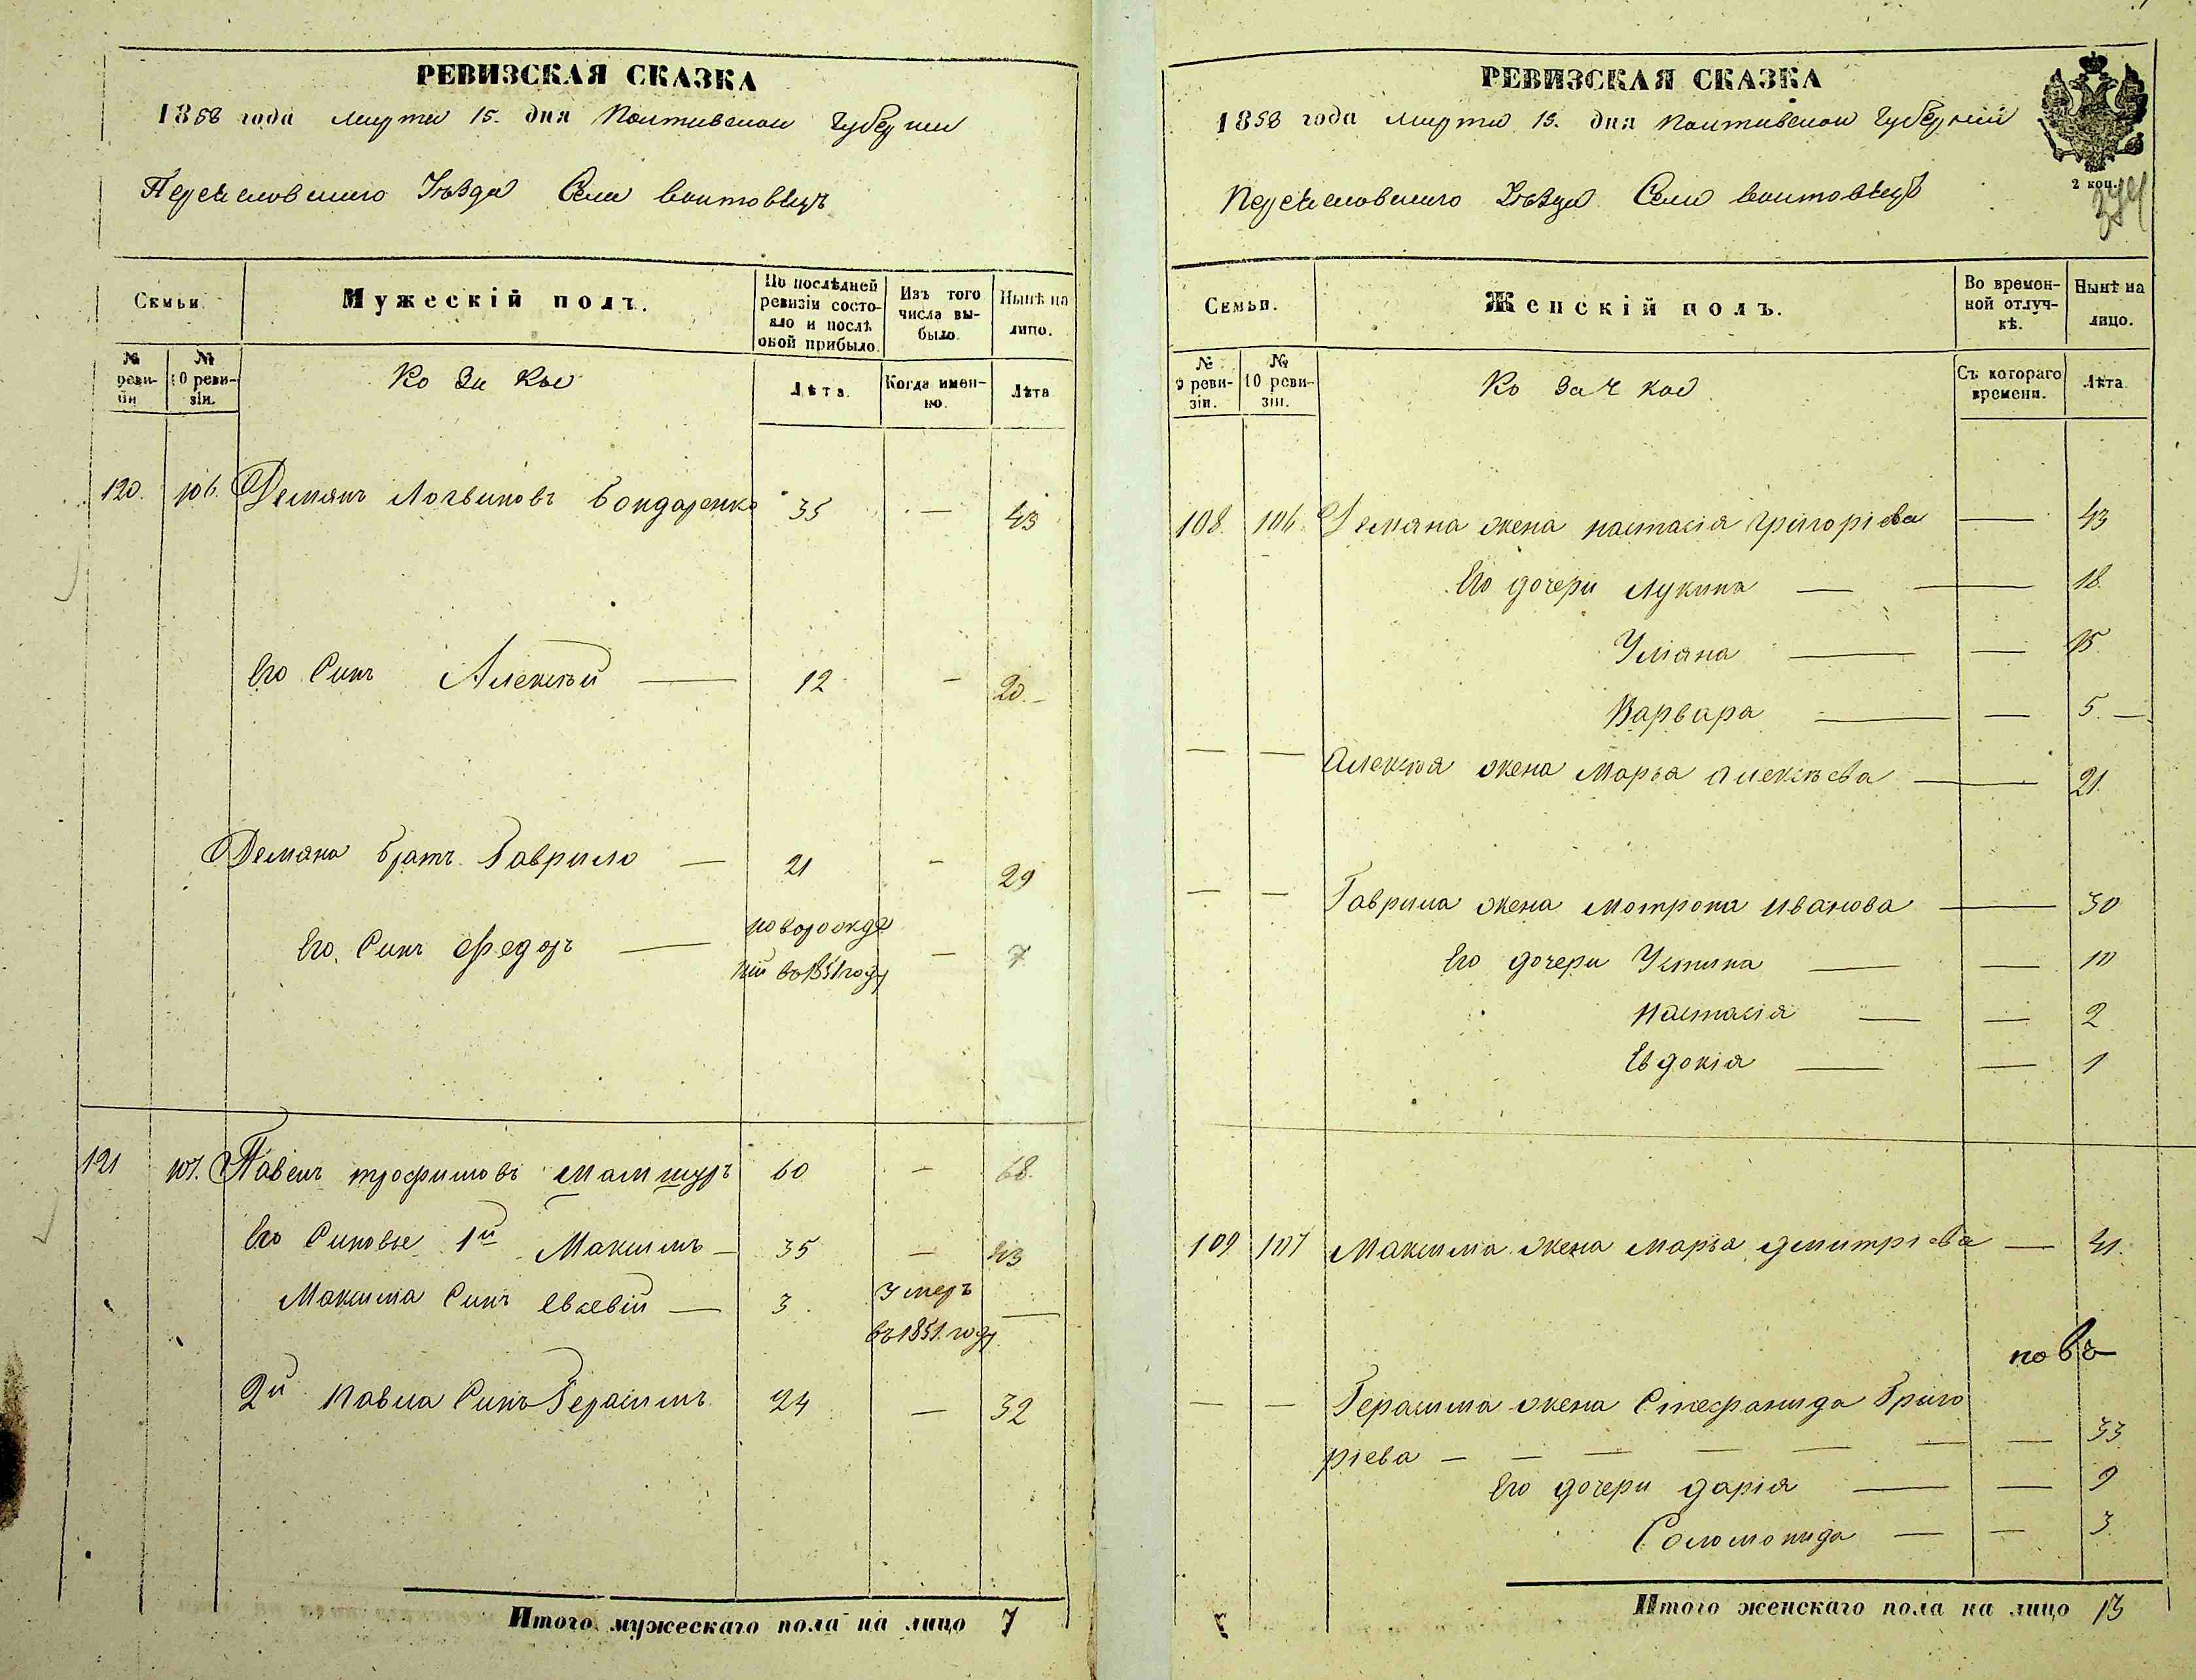 РЕВИЗСКАЯ СКАЗКА
1858 года марта 15. дня Полтавской Губернии
Переяславского Уѣзда Села Войтовецъ
Семьи.
Мужескій полъ.
По послѣдней ревизіи состояло и послѣ оной прибыло.
Изъ того числа выбыло.
Нынѣ на лицо.
№ реви-зіи
№ 10 реви-зіи.
Козаки
Лѣта.
Когда имен-но.
Лѣта
120. 106. Демянъ Логвиновъ Бондаренко 35 — 43
Его Синъ Алексѣй — 12 — 20.
Демяна братъ Гаврило — 21 — 29
Его Синъ Федоръ — новорожде
ній въ 1851 году — 7
121 107. Павелъ трофимовъ Мамшуръ 60 — 68.
Его Синовье 1й Максимъ — 35 — 43
Максима Синъ Евсевій — 3. Умеръ
въ 1851. году —
2й Павла Синъ Герасимъ 24 — 32
Итого мужескаго пола на лицо 7
РЕВИЗСКАЯ СКАЗКА
1858 года марта 15. дня Полтавской Губерніи
Переяславского Уѣзда Села Войтовецъ
2 коп.
Семьи.
Женскій полъ.
Во времен-ной отлуч-кѣ.
Нынѣ на лицо.
№ 9 реви-зіи.
№ 10 реви-зіи.
Козачки
Съ котораго времени.
Лѣта
108. 106. Демяна жена настасія григоріева — 43
Его дочери Лукина — — 18.
Уліяна — — 15
Варвара — — 5. —
— — Алексѣя жена Марья алексѣева — 21.
— — Гаврила жена мотрона иванова — 30
Его дочери Устина — — 10
Настасія — — 2
Евдокія — — 1
109 107 Максима жена марья дмитріева — 41.
— — Герасима жена Стефанида Григо
ріева — — — — — — — 33
Его дочери дарія — — 9
Соломонида — — 3
Итого женскаго пола на лицо 13